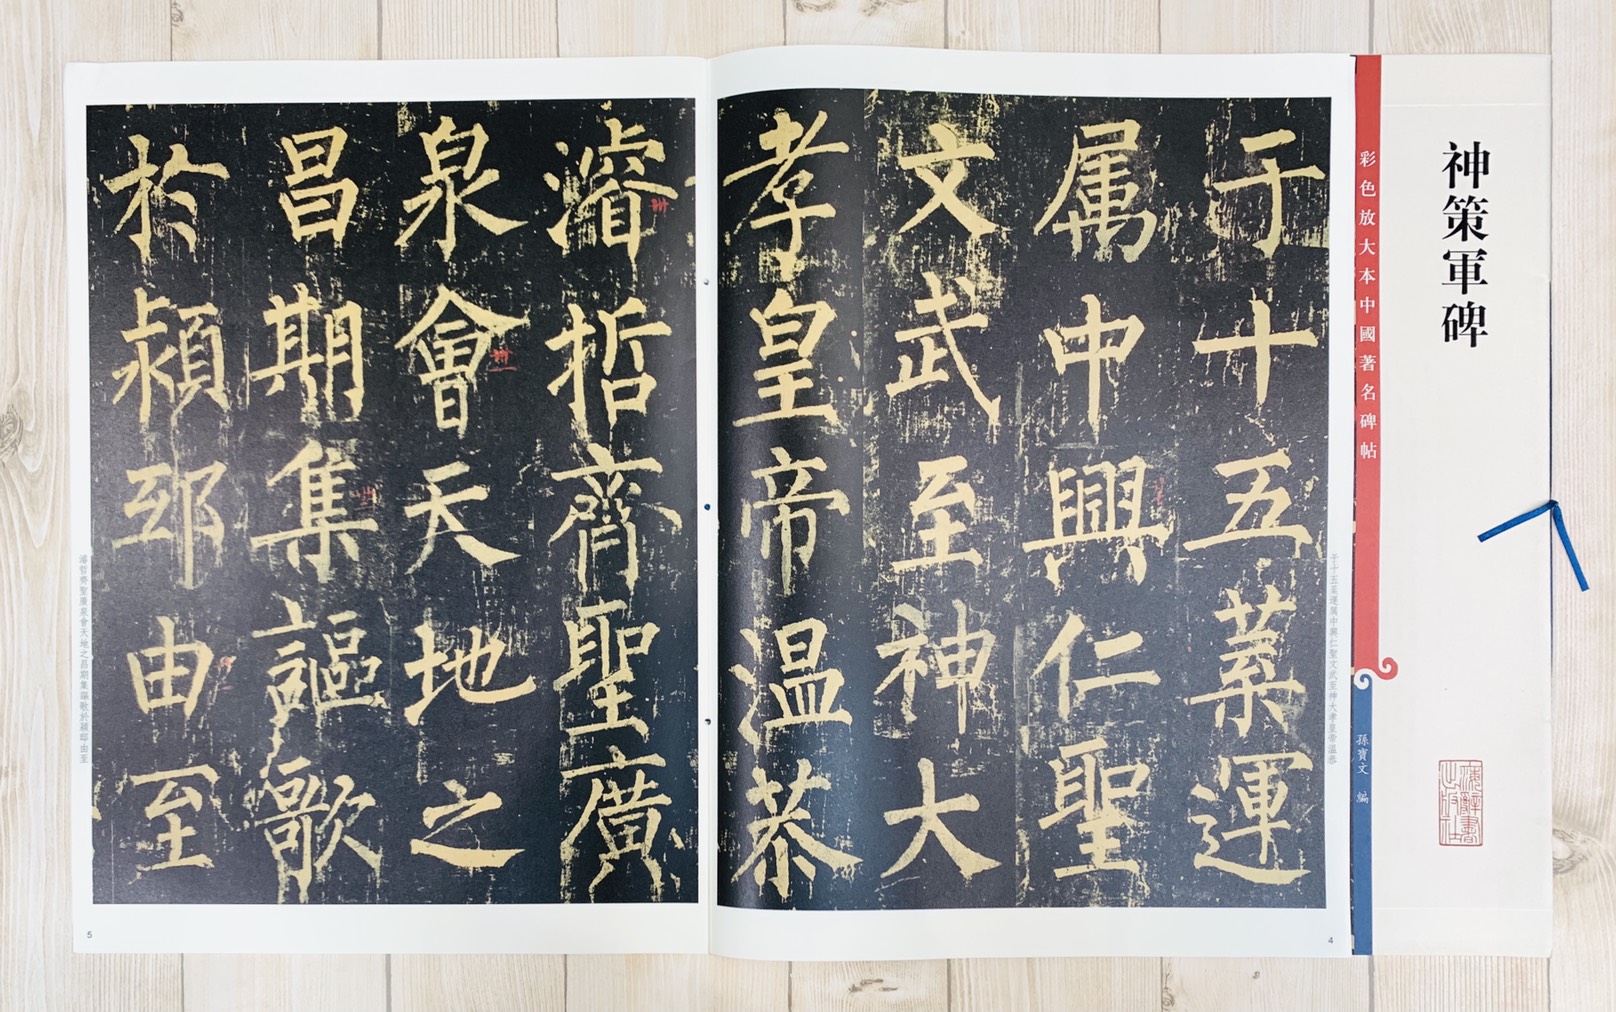 神策軍碑
彩色放大本中國著名碑帖
孫寶文 編
上海辭書出版社
于十五葉運
属中興仁聖
文武至神大
孝皇帝温恭
濬哲齊聖廣
泉會天地之
昌期集謳歌
於潁邸由至
于十五葉運属中興仁聖文武至神大孝皇帝温恭
濬哲齊聖廣泉會天地之昌期集謳歌於潁邸由至
4
5